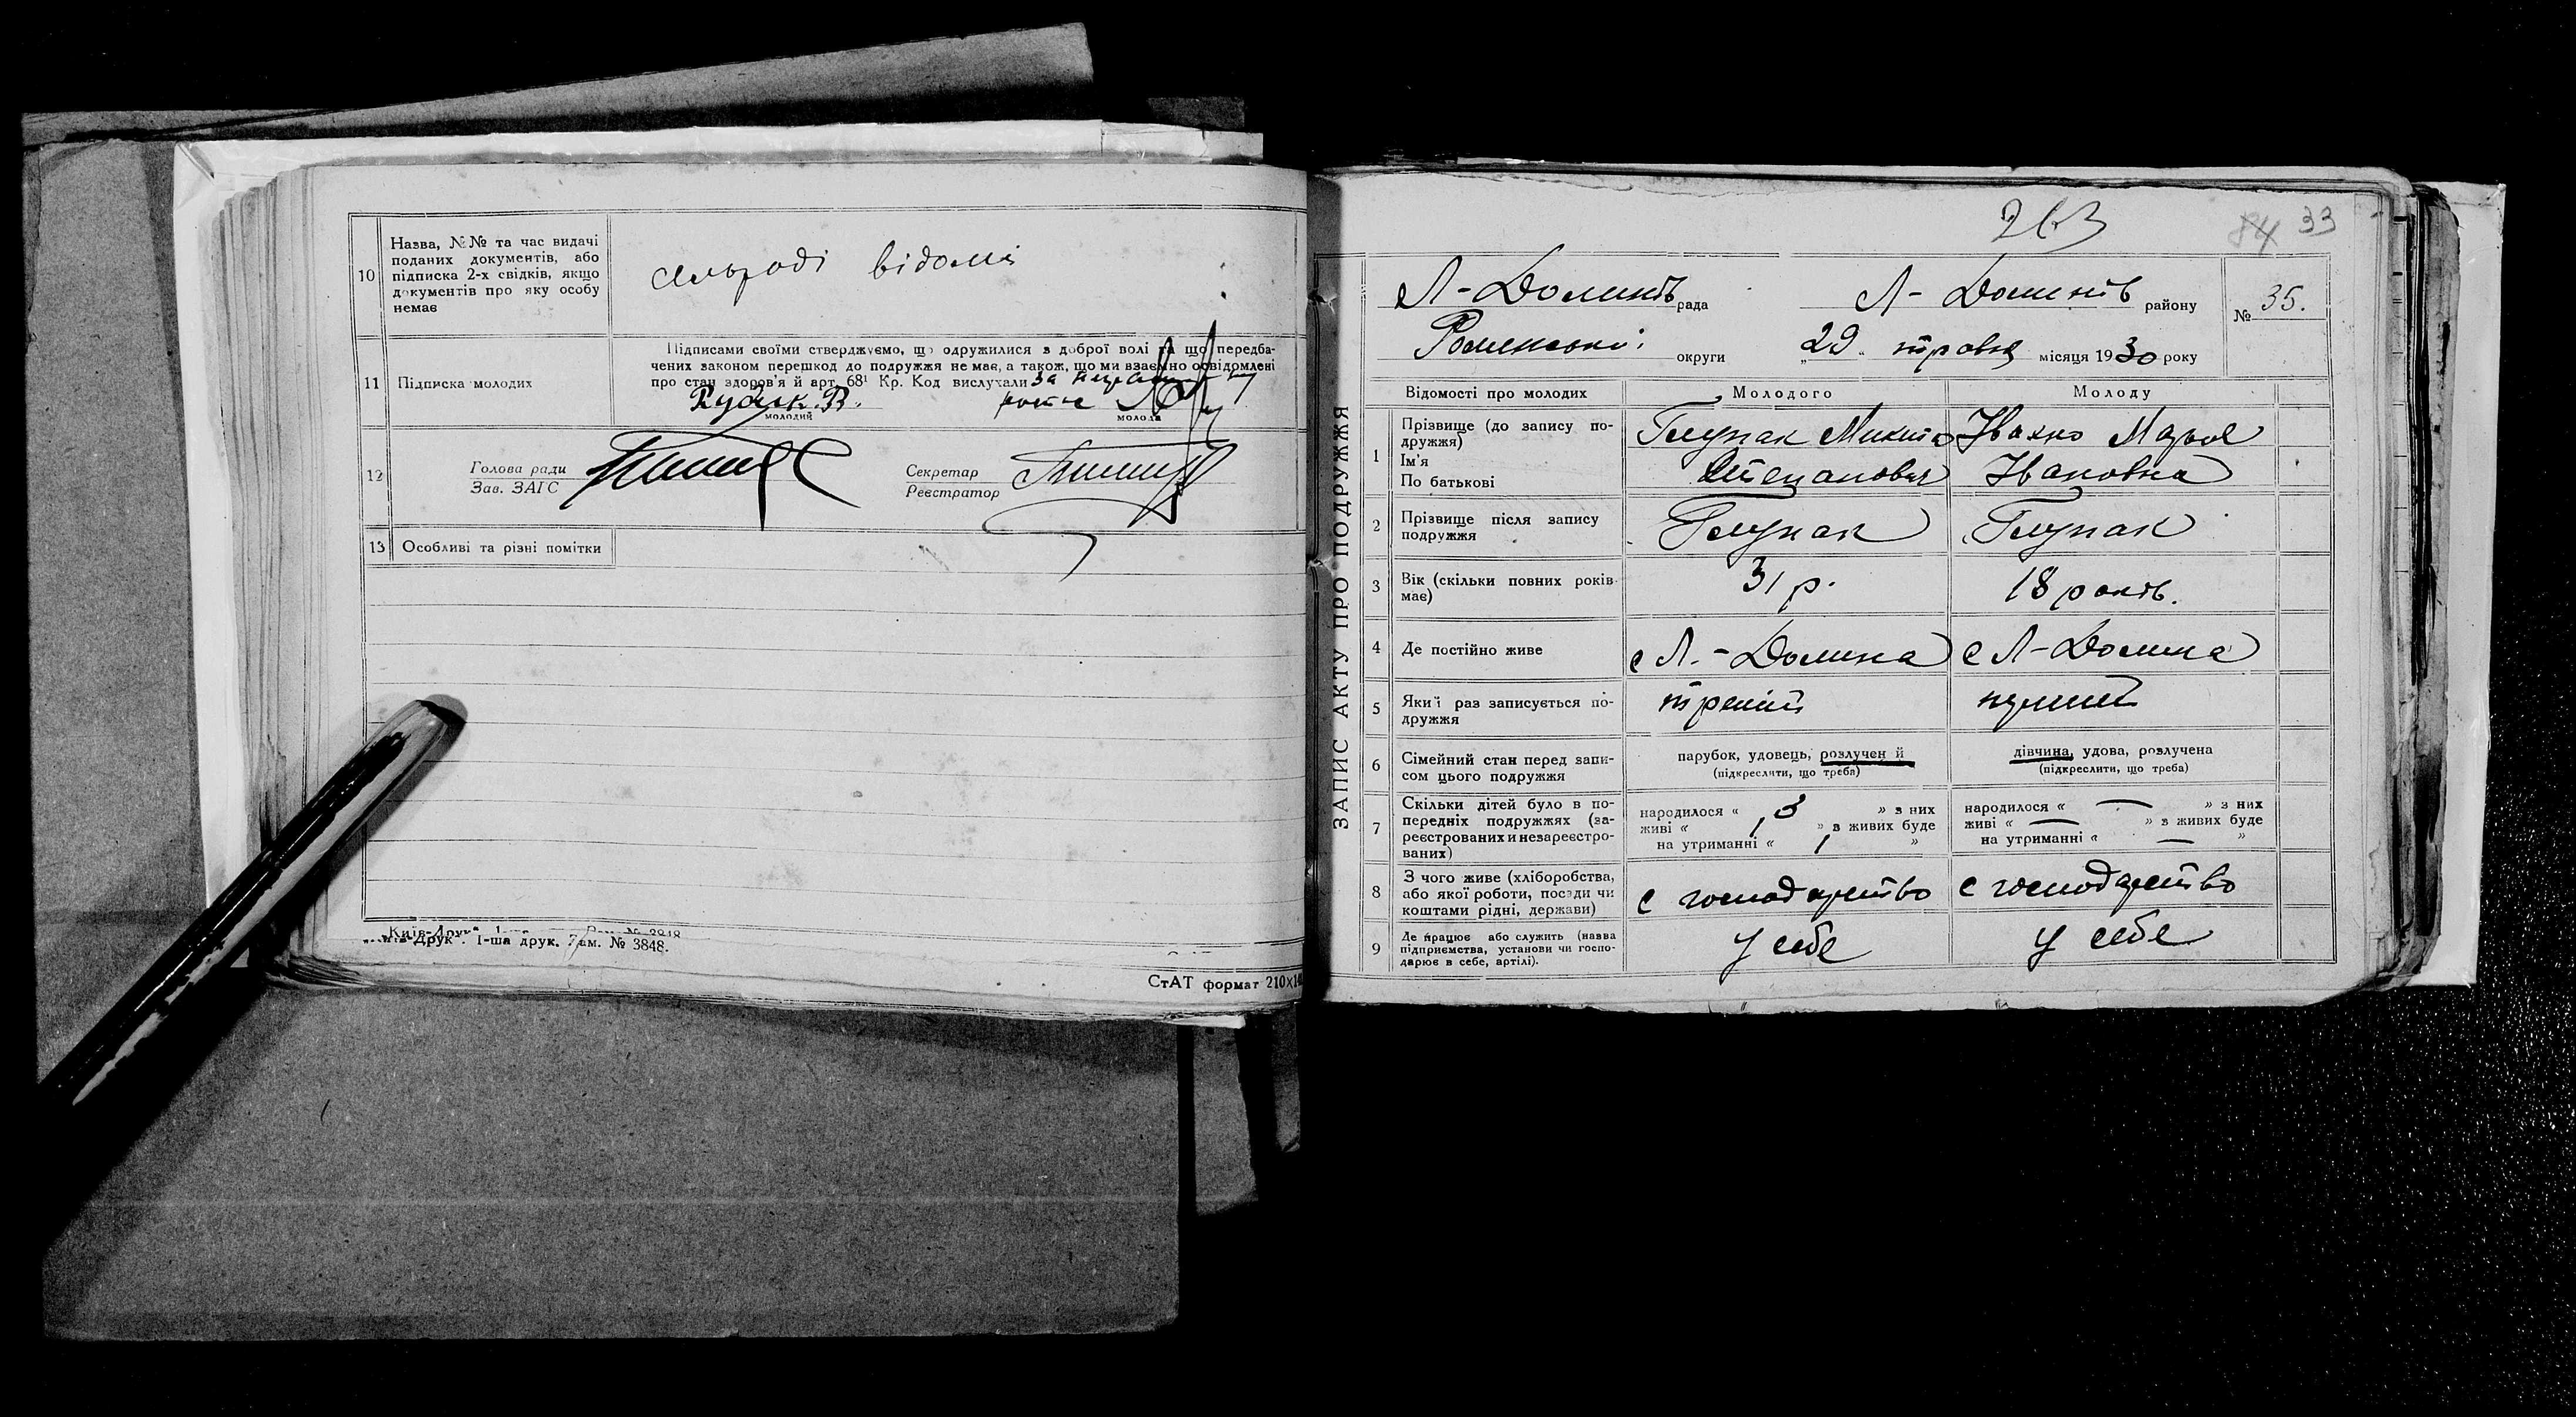 10
Назва, №№ та час видачі
поданих документів, або
підписка 2-х свідків, якщо
документів про яку особу
немає
сельраді відомі
11
Підписка молодих
Підписами своїми стверджуємо, що одружилися з доброї волі та що передба-
чених законом перешкод до подружжя не має, а також, що ми взаємно освідомлені
про стан здоров'я й арт. 68¹ Кр. Код вислухали за
молодий
молода
12
Голова ради
Зав. ЗАГС
Секретар
Реєстратор
13
Особливі та різні помітки
Київ-Друк". 1-ша друк. Зам. № 3848.
СтАТ формат 210×14
263
84 33
ЗАПИС АКТУ ПРО ПОДРУЖЖЯ
Л-Долинсь рада Л-Долинсь району № 35.
Роменської округи „29" травня місяця 1930 року
Відомості про молодих Молодого Молоду
1
Прізвище (до запису по-
дружжя)
Ім'я
По батькові
Глупак Микита
Степанович
Івахно Марья
Івановна
2
Прізвище після запису
подружжя
Глупак
Глупак
3
Вік (скільки повних років
має)
31 р.
18 років.
4
Де постійно живе
с Л.-Долина
с Л-Долина
5
Який раз записується по-
дружжя
третій
перший
6
Сімейний стан перед запи-
сом цього подружжя
парубок, удовець, розлучен й
(підкреслити, що треба)
дівчина, удова, розлучена
(підкреслити, що треба)
7
Скільки дітей було в по-
передніх подружжях (за-
реєстрованих и незареєстро-
ваних)
народилося « 3 » з них
живі « 1 » з живих буде
на утриманні « 1 »
народилося « — » з них
живі « — » з живих буде
на утриманні « — »
8
З чого живе (хліборобства,
або якої роботи, посади чи
коштами рідні, держави)
с господарство
с господарство
9
Де працює або служить (назва
підприємства, установи чи госпо-
дарює в себе, артілі).
У себе
У себе